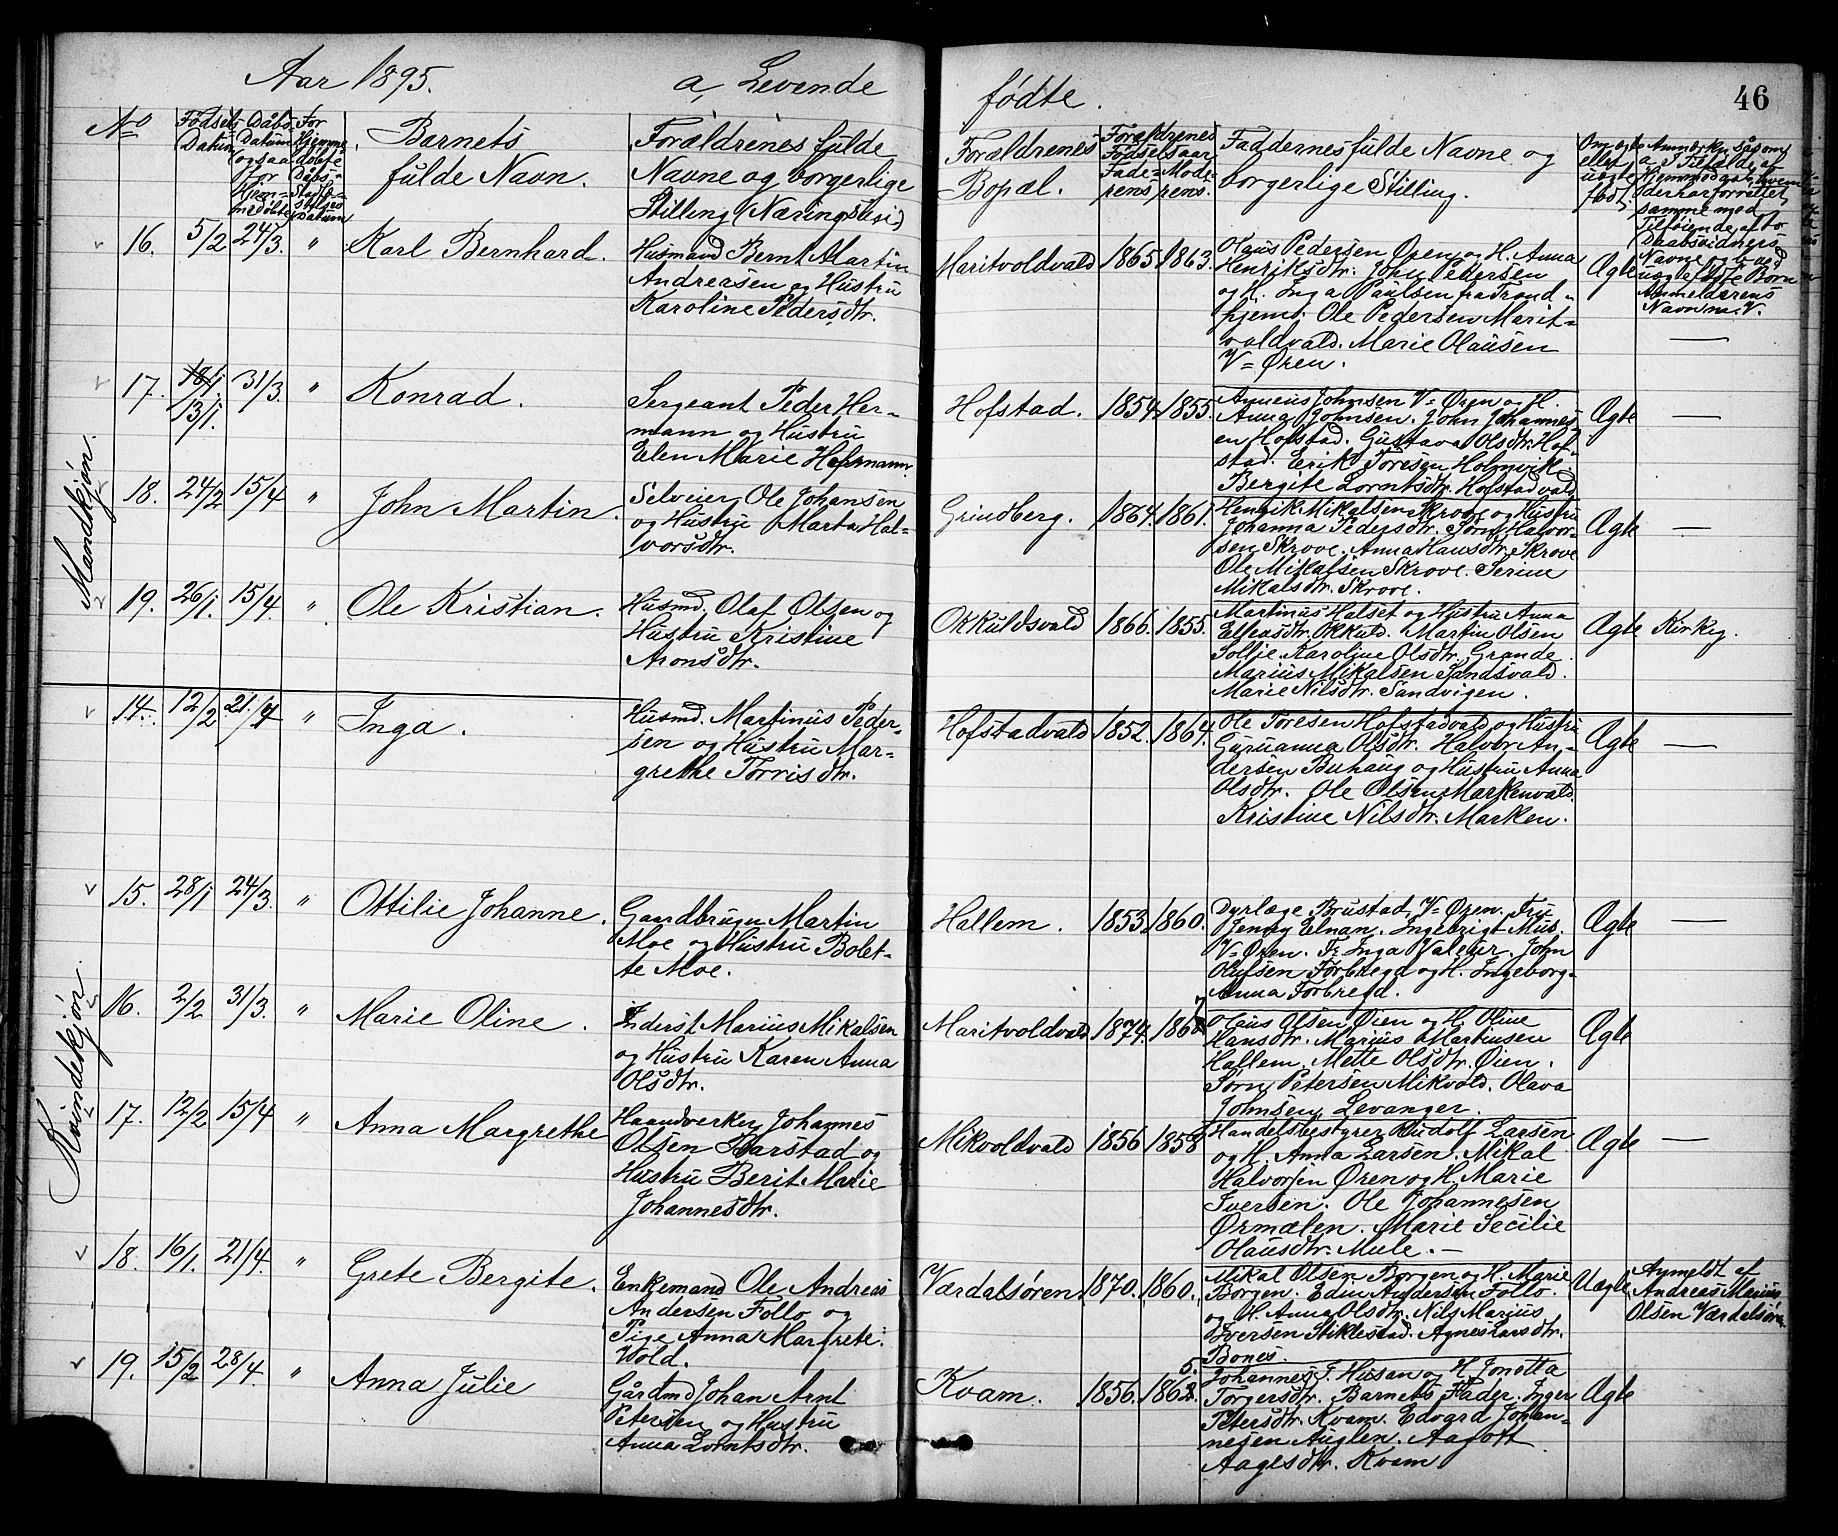 Aar 1895.
a, Levende
fødte.
46
No
Fødsels Datum
Daabs Datum ogsaa for Hjemmedøbte
For Hjemmedøbte Daabs-Stadfæstelses Datum
Barnets
fulde Navn.
Forældrenes fulde
Navne og borgerlige
Stilling (Næringsvei)
Forældrenes
Bopæl.
Forældrenes
Fødselsaar
Faderens Moderens.
Faddernes fulde Navne og
borgerlige Stilling.
Om ægte
eller
uægte
født.
Anmærkn. Såsom
samme med
Tilføiende af to
Daabsvidners
Navne og ved
uægte fødte Børn
Anmelderens
Navn m. V.
Mandkjøn.
16. 5/2 24/3. " Karl Bernhard.
Husmand Bernt Martin
Andreasen og Hustru
Karoline Pedersdtr.
Maritvoldvald 1865 1863.
Olaus Pedersen Øren og H. Anna
Henriksdtr. John Pedersen
og H. Inga Paulsen fra Trond-
hjem. Ole Pedersen Marit-
voldvald. Marie Olausen
V=Øren.
Ægte —
17. 18/1. 13/1. 31/3. " Konrad.
Sergeant Peder Her-
mann og Hustru
Elen Marie Hermann
Hofstad. 1854 1855.
Anneus Johnsen V=Øren og H.
Anna Johnsen. John Johannes-
en Hofstad. Gustava Olsdtr. Hof-
stad. Erik Toresen Holmvik.
Bergite Lorntsdtr. Hofstadvald
Ægte —
18. 24/2 15/4 " John Martin.
Selveier Ole Johansen
og Hustru Marta Hal-
vorsdtr.
Grindberg. 1864. 1861.
Henrik Mikalsen Skrove og Hustru
Johanna Pedersdtr. Sørn Halvor-
sen Skrove. Anna Hansdtr. Skrove
Ole Mikalsen Skrove. Serine
Mikalsdtr. Skrove.
Ægte —
19. 26/1. 15/4. " Ole Kristian.
Husmd. Olaf Olsen og
Hustru Kristine
Aronsdtr.
Okkuldsvald 1866. 1855.
Martinus Halset og Hustru Anna
Ellensdtr. Okkuld. Martin Olsen
Sollie. Karoline Olsdtr. Grande.
Marius Mikalsen Sandsvald.
Marie Nilsdtr. Sandvigen.
Ægte Kirkeg.
Kvindekjøn.
14. 12/2 21/4 " Inga.
Husmd. Martinus Peder-
sen og Hustru Mar-
grethe Torrisdtr.
Hofstadvald 1852. 1864.
Ole Toresen Hofstadvald og Hustru
Guruanna Olsdtr. Halvor An-
dersen Buhaug og Hustru Anna
Olsdtr. Ole Olsen Markenvald.
Kristine Nilsdtr. Marken.
Ægte —
15. 28/1 24/3. " Ottilie Johanne.
Gaardbruger Martin
Moe og Hustru Bolet-
te Moe.
Hallem. 1853. 1860.
Dyrlæge Brustad, V=Øren. Fru
Jenny Elnan. Ingebrigt Mus.
V=Øren. Fr. Inga Valeur. John
Olufsen Forbregd og H. Ingeborg-
Anna Forbregd.
Ægte —
16. 2/2 31/3. " Marie Oline.
Inderst Marius Mikalsen
og Hustru Karen Anna
Olsdtr.
Maritvoldvald 1874. 1867
Olaus Olsen Øien og H. Oline
Hansdtr. Marius Martinsen
Hallem. Mette Olsdtr. Øien.
Sørn Petersen Mikvold. Olava
Johnsen, Levanger.
Ægte
17. 12/2 15/4 " Anna Margrethe
Haandverker Johannes
Olsen Harstad og
Hustru Berit Marie
Johannesdtr.
Mikvoldvald 1856 1858
Handelsbestyrer Rudolf Larsen
og H. Anna Larsen. Mikal
Halvorsen Øren og H. Marie
Iversen. Ole Johannesen
Ørmælen. Marie Secilie
Olausdtr. Mule. —
Ægte —
18. 16/1. 21/4. " Grete Bergite.
Enkemand Ole Andreas
Andersen Follo og
Pige Anna Margrete
Wold.
Værdalsøren 1870. 1860.
Mikal Olsen Borgen og H. Marie
Borgen. Edin Andersen Follo.
og H. Anna Olsdtr. Nils Marius
Iversen Stiklestad. Agnes Larsdtr.
Bones.
Uægte
Anmeldt af
Andreas Marius
Olsen Værdalsøren
19. 15/2 28/4. " Anna Julie
Gårdmd Johan Arnt
Petersen og Hustru
Anna Lorntsdtr.
Kvam. 1856. 1865.
Johannes T. Husan og H. Jonetta
Torgersdtr. Barnets Fader. Inger
Petersdtr. Kvam. Edvard Johan-
nesen Auglen. Aagott
Aagesdtr. Kvam
Ægte